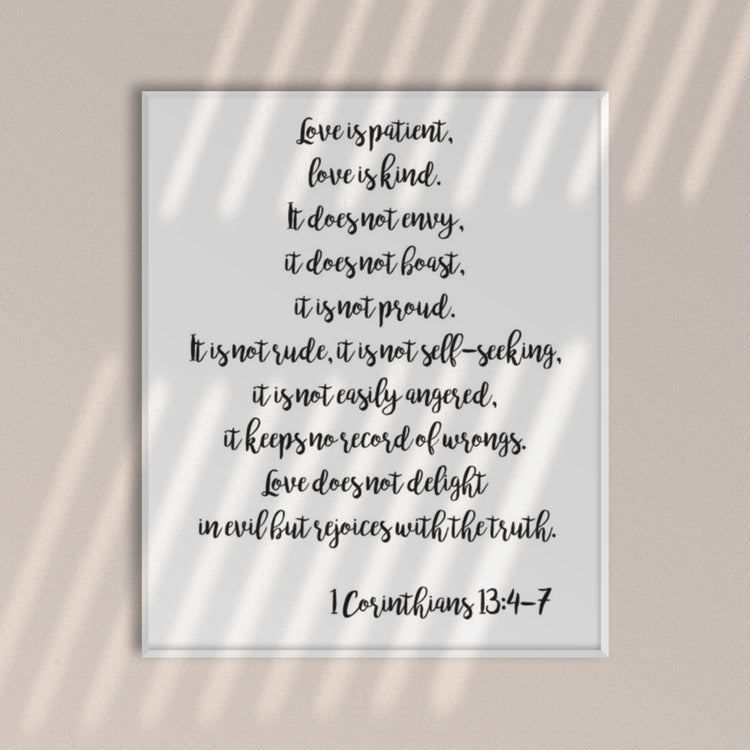 Love is patient,
love is kind.
It does not envy,
it does not boast,
it is not proud.
It is not rude, it is not self-seeking,
it is not easily angered,
it keeps no record of wrongs.
Love does not delight
in evil but rejoices with the truth.
1 Corinthians 13:4-7